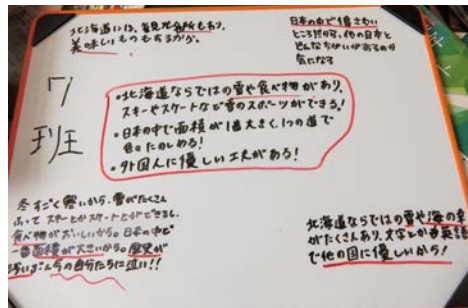 北海道には、
美味しいものもするから。
日本の中で1番さむい
ところだから、他の日本と
どんなちがいがあるのか
気になる
7
班
・北海道ならではの雪や食べ物があり、
スキーやスケートなど雪のスポーツができる!
・日本の中で面積が1番大きく、1つの道で
色々たのしめる!
・外国人に優しい工夫がある!
冬すごく寒いから、雪がたくさん
ふって スキーとかスケートとかできるし、
食べ物がおいしいから。日本の中で
一番面積が大きいから。歴史が
今の自分たちに近い!!
北海道ならではの雪や海の幸
がたくさんあり、文字とかも英語
で他の国に優しいから!